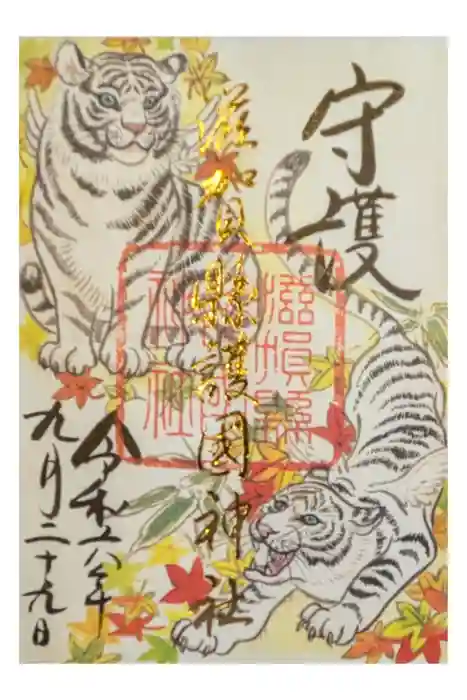 守護
滋賀縣護國神社
滋賀縣
神社
令和六年
九月二十九日